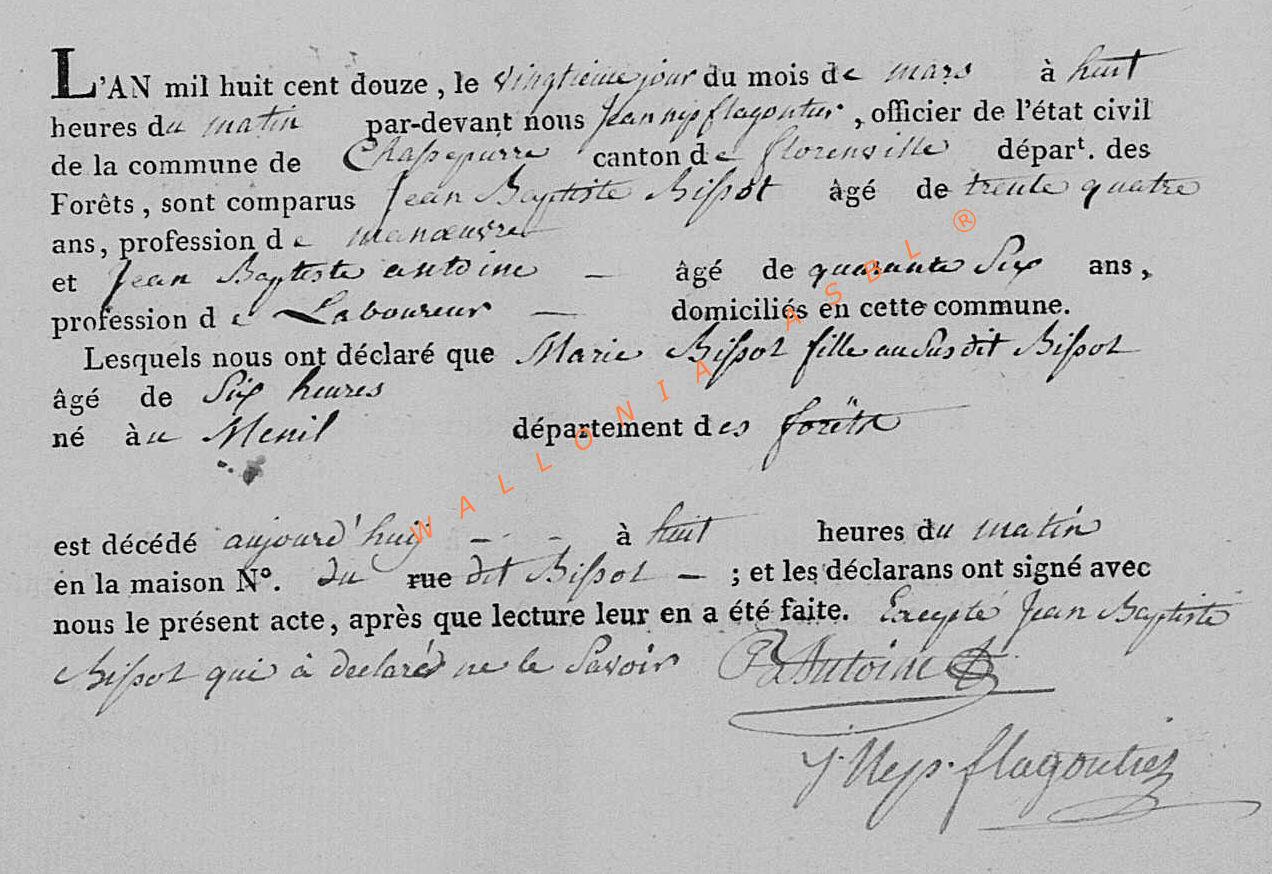 L'AN mil huit cent douze, le vingtieme jour du mois de mars à huit
heures du matin par-devant nous Jean nips flagontier, officier de l'état civil
de la commune de Chassepierre canton de florenville départ. des
Forêts, sont comparus Jean Baptiste Bissot âgé de trente quatre
ans, profession de manœuvre
et Jean Baptiste antoine — âgé de quarante Six ans,
profession de Laboureur — domiciliés en cette commune.
Lesquels nous ont déclaré que Marie Bissot fille au Susdit Bissot
âgé de Six heures
né à u Menil département des forêts
est décédé aujourd'huy - - - à huit heures du matin
en la maison N°. du rue dit Bissot — ; et les déclarans ont signé avec
nous le présent acte, après que lecture leur en a été faite. Excepté Jean Baptiste
Bissot qui à declaré ne le Savoir B Antoine
flagontier
WALLONIA ASBL ®